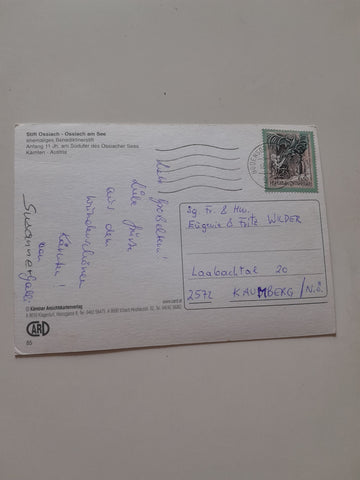 Stift Ossiach - Ossiach am See
ehemaliges Benediktinerstift
Anfang 11. Jh. am Südufer des Ossiacher Sees
Kärnten - Austria
Liebe Grüße
aus dem
wunderschönen
Kärnten!
von
Susanne
Sg. Fr. & Hrn.
Eugenie & Fritz WILDER
Laabachtal 20
2572 KAUMBERG / N.Ö.
© Kärntner Ansichtskartenverlag
www.card.at
CARD
85